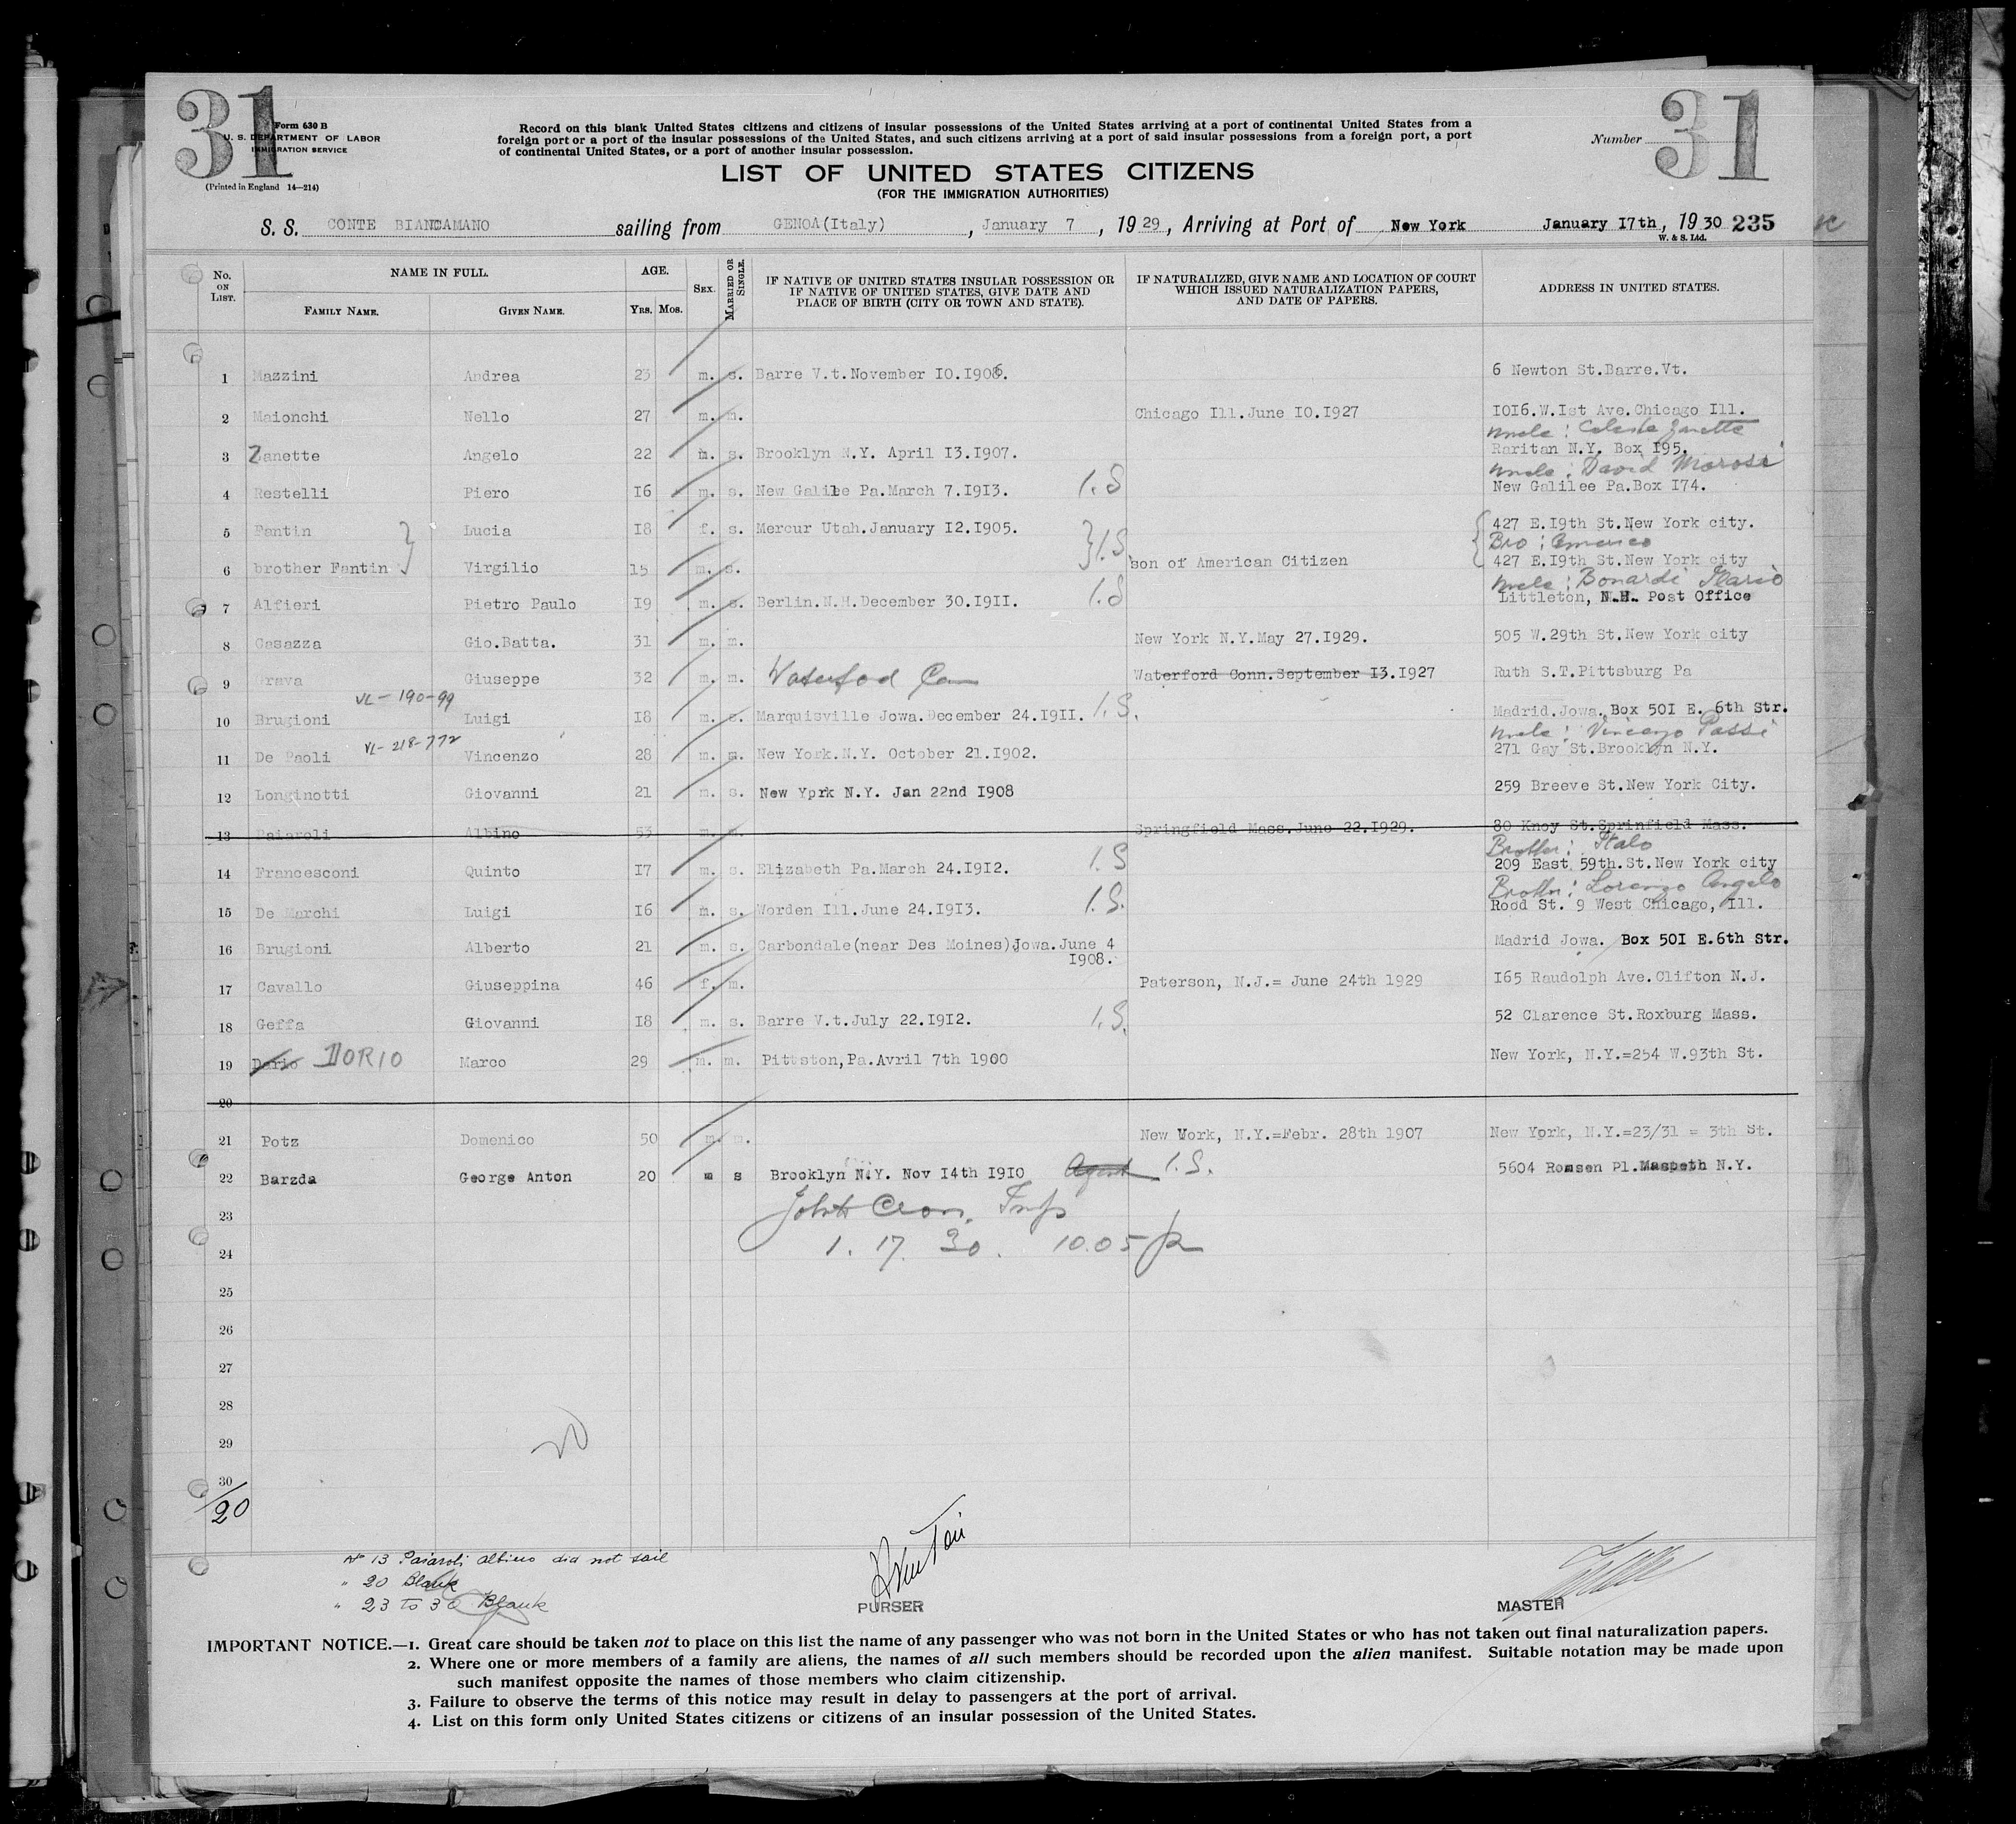 31
31
Form 630 B
U. S. DEPARTMENT OF LABOR
IMMIGRATION SERVICE
(Printed in England 14—214)
Record on this blank United States citizens and citizens of insular possessions of the United States arriving at a port of continental United States from a
foreign port or a port of the insular possessions of the United States, and such citizens arriving at a port of said insular possessions from a foreign port, a port
of continental United States, or a port of another insular possession.
Number
LIST OF UNITED STATES CITIZENS
(FOR THE IMMIGRATION AUTHORITIES)
S. S. CONTE BIANCAMANO sailing from GENOA(Italy), January 7, 1929, Arriving at Port of New York January 17th, 1930 235
W. & S. Ltd.
No. ON LIST. NAME IN FULL. FAMILY NAME. GIVEN NAME. AGE. YRS. MOS. SEX. MARRIED OR SINGLE. IF NATIVE OF UNITED STATES INSULAR POSSESSION OR IF NATIVE OF UNITED STATES, GIVE DATE AND PLACE OF BIRTH (CITY OR TOWN AND STATE). IF NATURALIZED, GIVE NAME AND LOCATION OF COURT WHICH ISSUED NATURALIZATION PAPERS, AND DATE OF PAPERS. ADDRESS IN UNITED STATES.
1 Mazzini Andrea 23 m. s. Barre V.t.November 10.1906. 6 Newton St.Barre.Vt.
2 Maionchi Nello 27 m. m. Chicago Ill.June 10.1927 1016.W.1st Ave.Chicago Ill.
Uncle: Celeste Zanette
3 Zanette Angelo 22 m. s. Brooklyn N.Y. April 13.1907. Raritan N.Y. Box 195.
Uncle: David Marosi
4 Restelli Piero 16 m. s. New Galilee Pa.March 7.1913. I.S New Galilee Pa.Box 174.
5 Fantin Lucia 18 f. s. Mercur Utah.January 12.1905. I.S. 427 E.19th St.New York city.
Bro: Americo
6 brother Fantin Virgilio 15 m. s. son of American Citizen 427 E.19th St.New York city
Uncle: Bonardi Ilario
7 Alfieri Pietro Paulo 19 m. s. Berlin.N.H.December 30.1911. I.S Littleton, N.H. Post Office
8 Casazza Gio.Batta. 31 m. m. New York N.Y.May 27.1929. 505 W.29th St.New York city
9 Grava Giuseppe 32 m. m. Waterford Conn.September 13.1927 Ruth S.T.Pittsburg Pa
VL-190-99
10 Brugioni Luigi 18 m. s. Marquisville Jowa.December 24.1911. I.S. Madrid.Jowa. Box 501 E. 6th Str.
VL-218-772 Uncle: Vincenzo Passi
11 De Paoli Vincenzo 28 m. m. New York.N.Y. October 21.1902. 271 Gay St.Brooklyn N.Y.
12 Longinotti Giovanni 21 m. s. New Yprk N.Y. Jan 22nd 1908 259 Breeve St.New York City.
13 Paiaroli Albino 53 m. Springfield Mass.June 22.1929. 80 Knoy St.Sprinfield Mass.
Brother: Italo
14 Francesconi Quinto 17 m. s. Elizabeth Pa.March 24.1912. I.S 209 East 59th.St.New York city
Brother: Lorenzo Angelo
15 De Marchi Luigi 16 m. s. Worden Ill.June 24.1913. I.S. Rood St. 9 West Chicago, Ill.
16 Brugioni Alberto 21 m. s. Carbondale(near Des Moines)Jowa.June 4 Madrid Jowa. Box 501 E.6th Str.
1908.
17 Cavallo Giuseppina 46 f. m. Paterson, N.J.= June 24th 1929 165 Raudolph Ave.Clifton N.J.
18 Geffa Giovanni 18 m. s. Barre V.t.July 22.1912. I.S. 52 Clarence St.Roxburg Mass.
19 Dario DORIO Marco 29 m. m. Pittston,Pa.Avril 7th 1900 New York, N.Y.=254 W.93th St.
20
21 Potz Domenico 50 m. m. New Work, N.Y.=Febr. 28th 1907 New York, N.Y.=23/31 = 3th St.
22 Barzda George Anton 20 m s Brooklyn N.Y. Nov 14th 1910 I.S. 5604 Romsen Pl.Maspeth N.Y.
23
24 1. 17. 30. 10.05
25
26
27
28
29
30
20
20
No 13 Paiaroli Albino did not sail
" 20 Blank
" 23 to 30 Blank
PURSER
MASTER
IMPORTANT NOTICE.—1. Great care should be taken not to place on this list the name of any passenger who was not born in the United States or who has not taken out final naturalization papers.
2. Where one or more members of a family are aliens, the names of all such members should be recorded upon the alien manifest. Suitable notation may be made upon
such manifest opposite the names of those members who claim citizenship.
3. Failure to observe the terms of this notice may result in delay to passengers at the port of arrival.
4. List on this form only United States citizens or citizens of an insular possession of the United States.